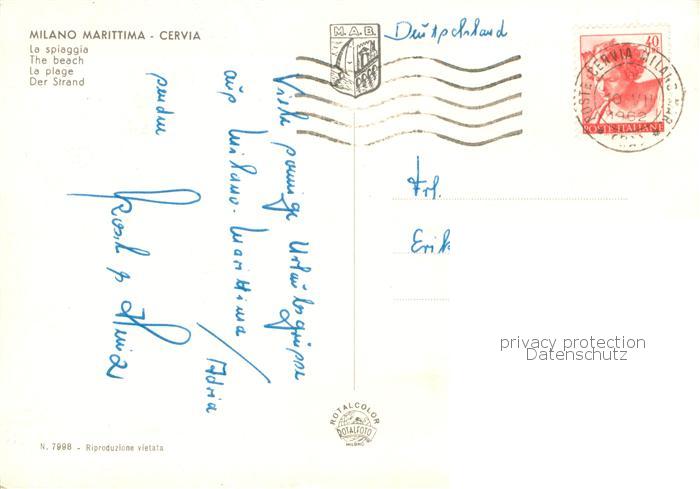 MILANO MARITTIMA - CERVIA
La spiaggia
The beach
La plage
Der Strand
M.A.B.
Deutschland
40
POSTE ITALIANE
1962
Viele sonnige Urlaubsgrüsse
aus Milano-Marittima/Adria
senden
Frl.
Erik
privacy protection
Datenschutz
ROTALCOLOR
ROTALFOTO
MILANO
N. 7998 - Riproduzione vietata